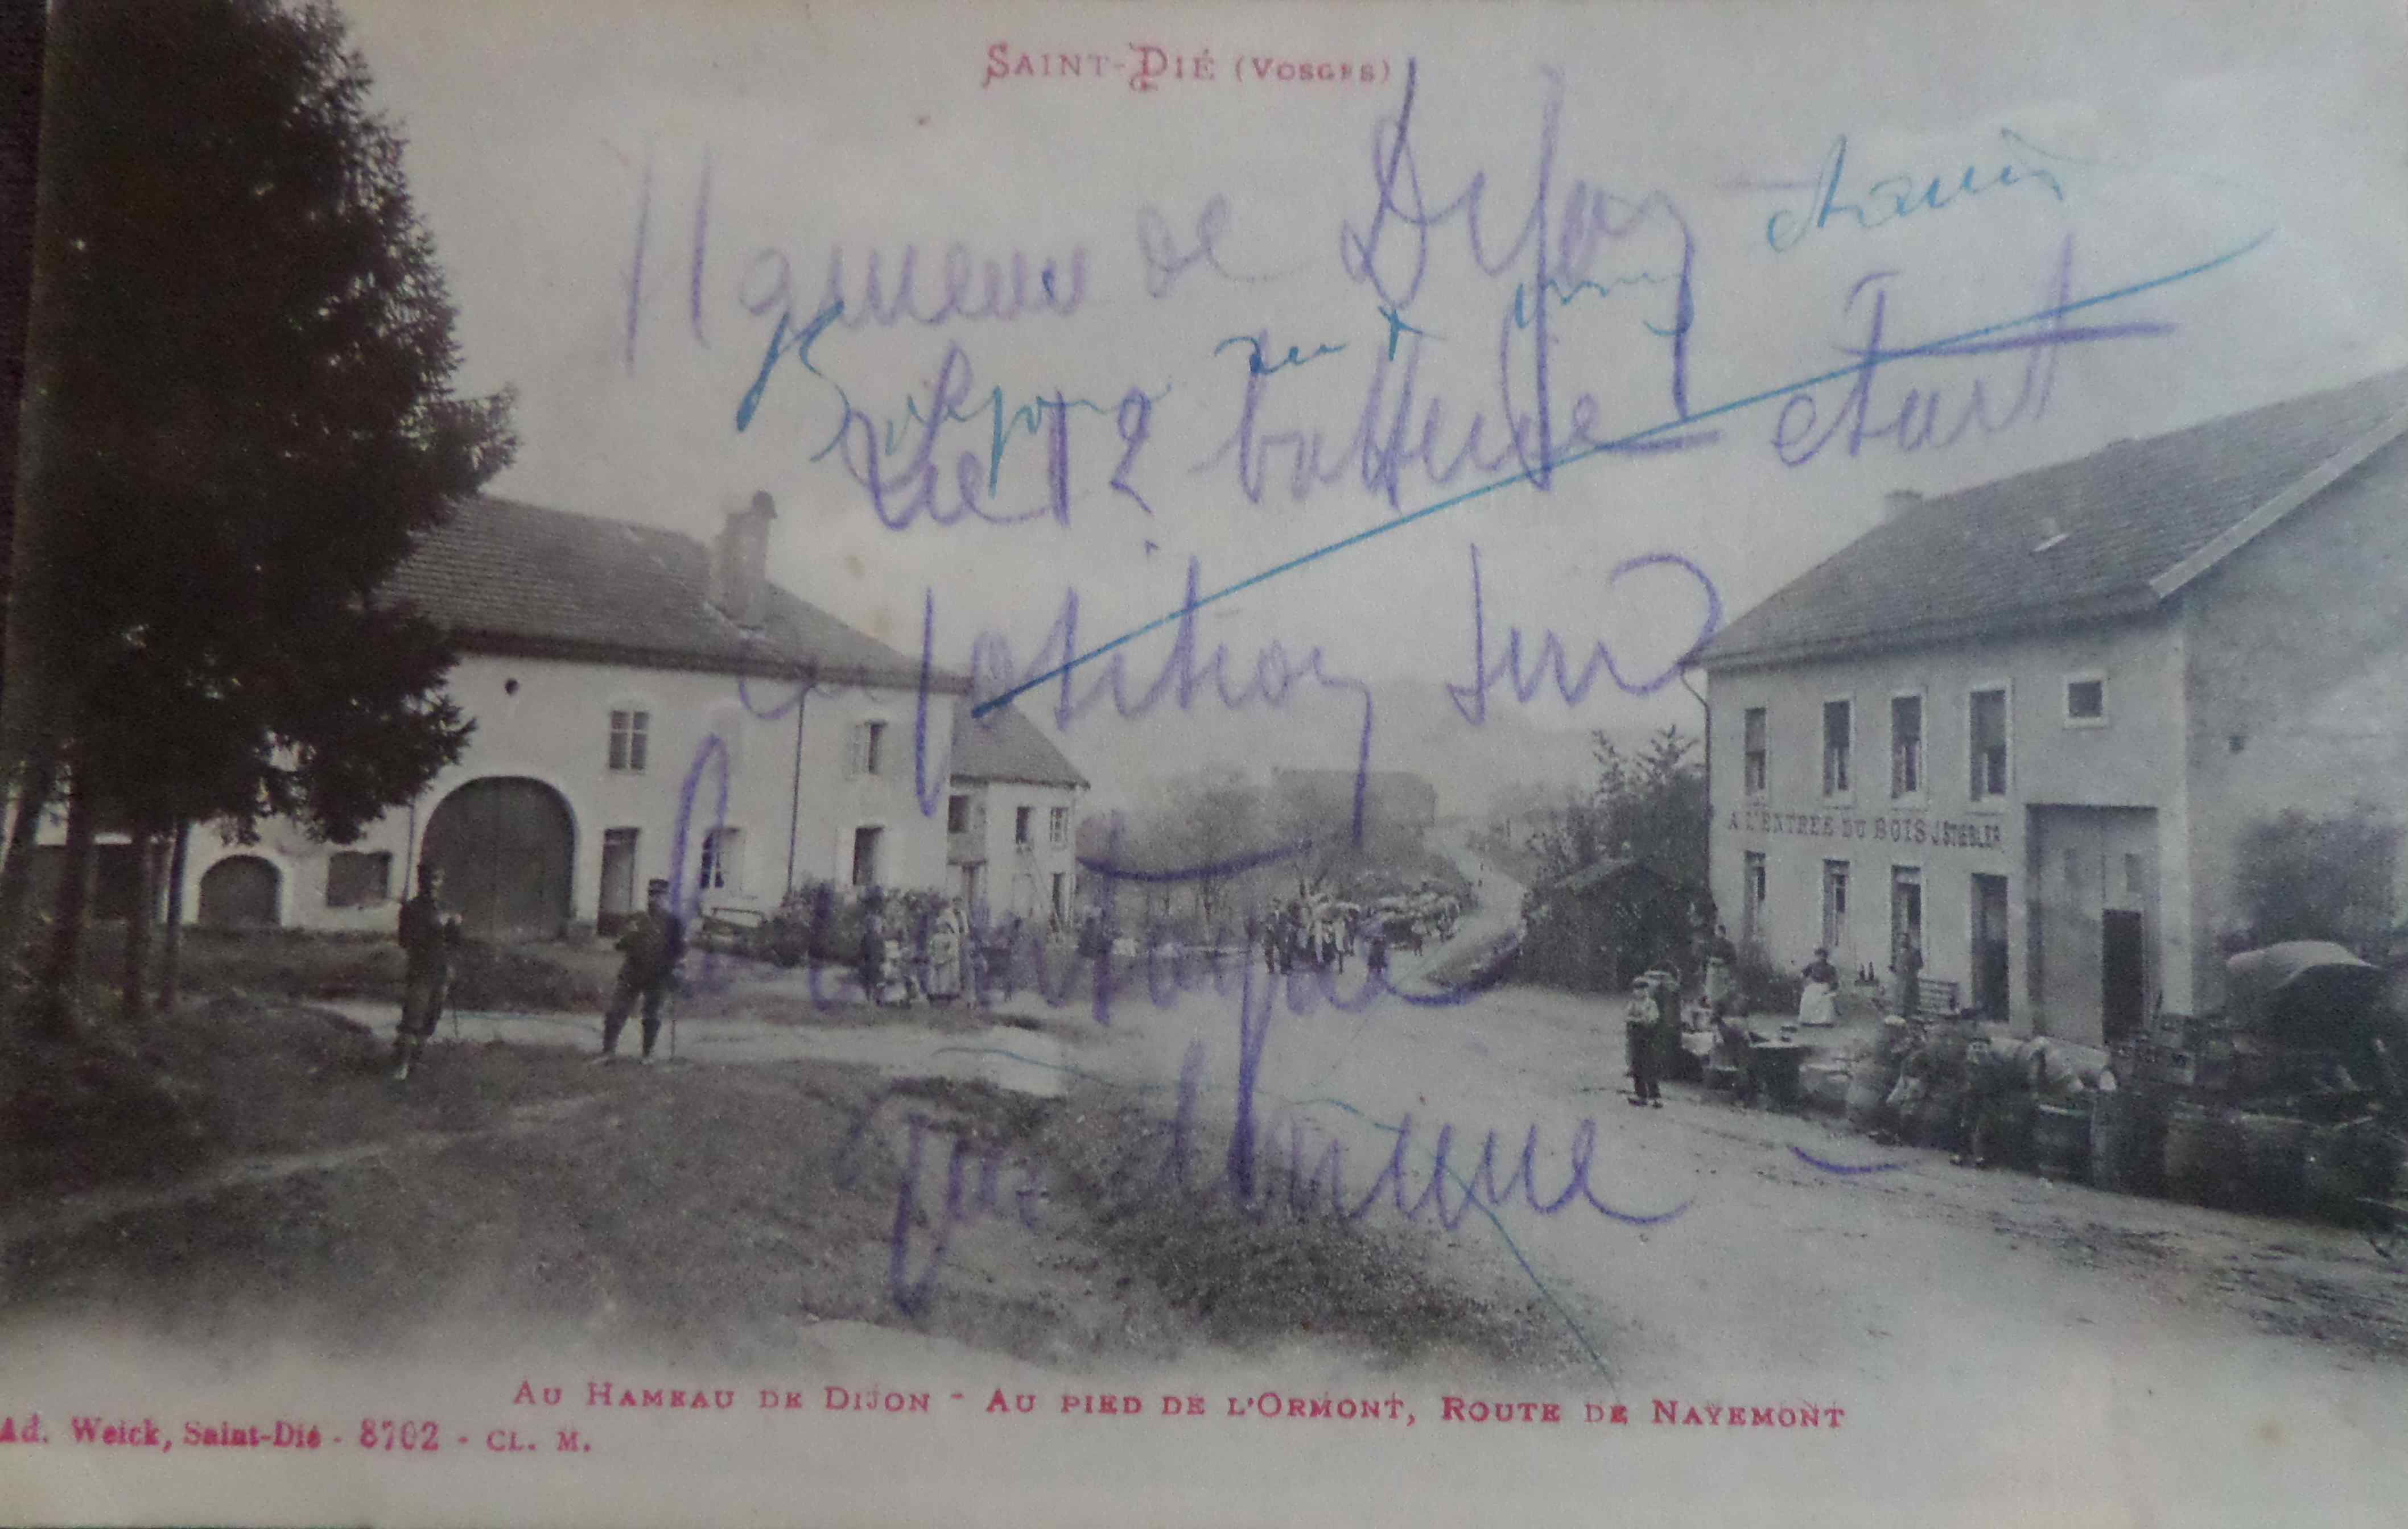 SAINT-DIÉ (VOSGES)
Hameau de Dijon
La 12 batterie était
en position sur
la montagne
qui domine
A L'ENTRÉE DU BOIS J. STEBLER
AU HAMEAU DE DIJON - AU PIED DE L'ORMONT, ROUTE DE NAYEMONT
Ad. Weick, Saint-Dié - 8702 - CL. M.